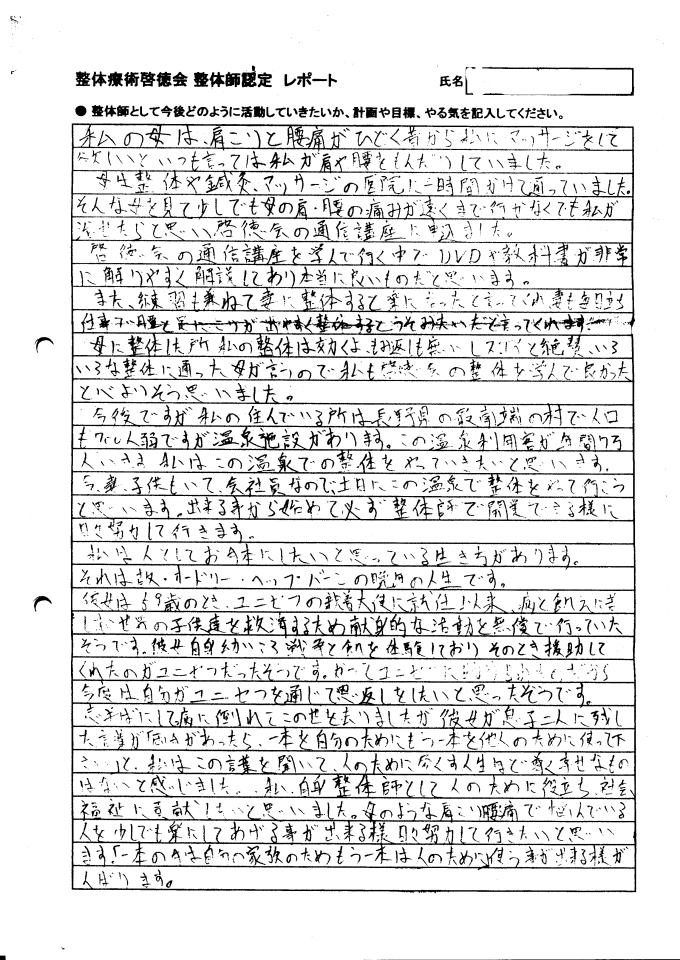 整体療術啓徳会 整体師認定 レポート 氏名
● 整体師として今後どのように活動していきたいか、計画や目標、やる気を記入してください。
私の母は、肩こりと腰痛がひどく昔から私にマッサージをして
欲しいといつも言っては私が肩や腰をもんだりしていました。
母は整体や鍼灸、マッサージの医院に二時間かけて通っていました。
そんな母を見て少しでも母の肩・腰の痛みが遠くまで行かなくても私が
治せたらと思い、啓徳会の通信講座に申込ました。
啓徳会の通信講座を学んで行く中でDVDや教科書が非常
に解りやすく解説してあり本当に良いものだと思います。
また、練習も兼ねて妻に整体すると楽になったと言ってくれ妻も毎日立ち
仕事で腰と
母に整体した所 私の整体は効くよ、もみ返しも無いしスゴイと絶賛、いろ
いろな整体に通った母が言うので私も啓徳会の整体を学んで良かった
と心よりそう思いました。
今後ですが私の住んでいる所は長野県の最南端の村で人口
も 人弱ですが温泉施設があります。この温泉利用客が年間7万
人いきます 私はこの温泉での整体をやっていきたいと思います。
今、妻、子供もいて、会社員なので土日にこの温泉で整体をやって行こう
と思います。出来る事から始めて必ず整体師で開業できる様に
日々努力して行きます。
私は人としてお手本にしたいと思っている生き方があります。
それは故・オードリー・ヘップ・バーンの晩年の人生です。
彼女は59歳のとき、ユニセフの親善大使に就任し以来、病と飢えに苦
しむ世界の子供達を救済するため献身的な活動を無償で行っていた
そうです。彼女自身幼いころ戦争と飢を体験しており そのとき援助して
くれたのがユニセフだったそうです。かつてユニセフに
今度は自分がユニセフを通じて恩返しをしたいと思ったそうです。
志半ばにして病に倒れてこの世を去りましたが彼女が息子二人に残し
た言葉が「 があったら、一本を自分のためにもう一本を他人のために使って下
さい」と、私はこの言葉を聞いて、人のために尽くす人生ほど尊く幸せなもの
はないと感じました。 私、自身整体師として人のために役立ち、社会
福祉に貢献したいと思いました。母のような肩こり腰痛で悩んでいる
人を少しでも楽にしてあげる事が出来る様日々努力して行きたいと思い
ます。「一本の手は自分の家族のためもう一本は人のために使う事が出来る様が
んばります。